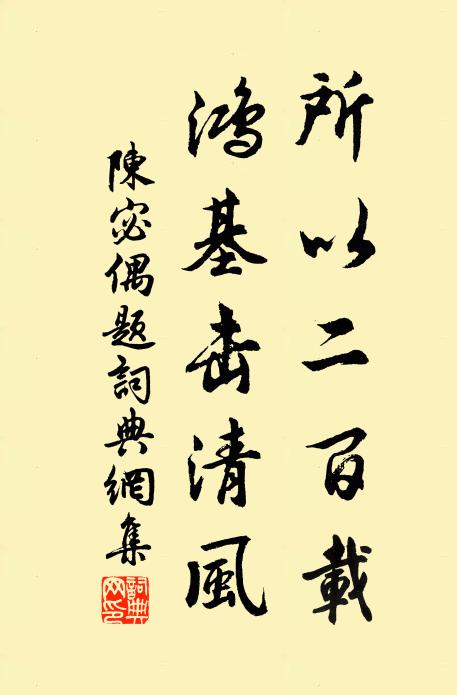 所以二百載
鴻基垂清風
陳宓偶題詞典網集
詞典
网印